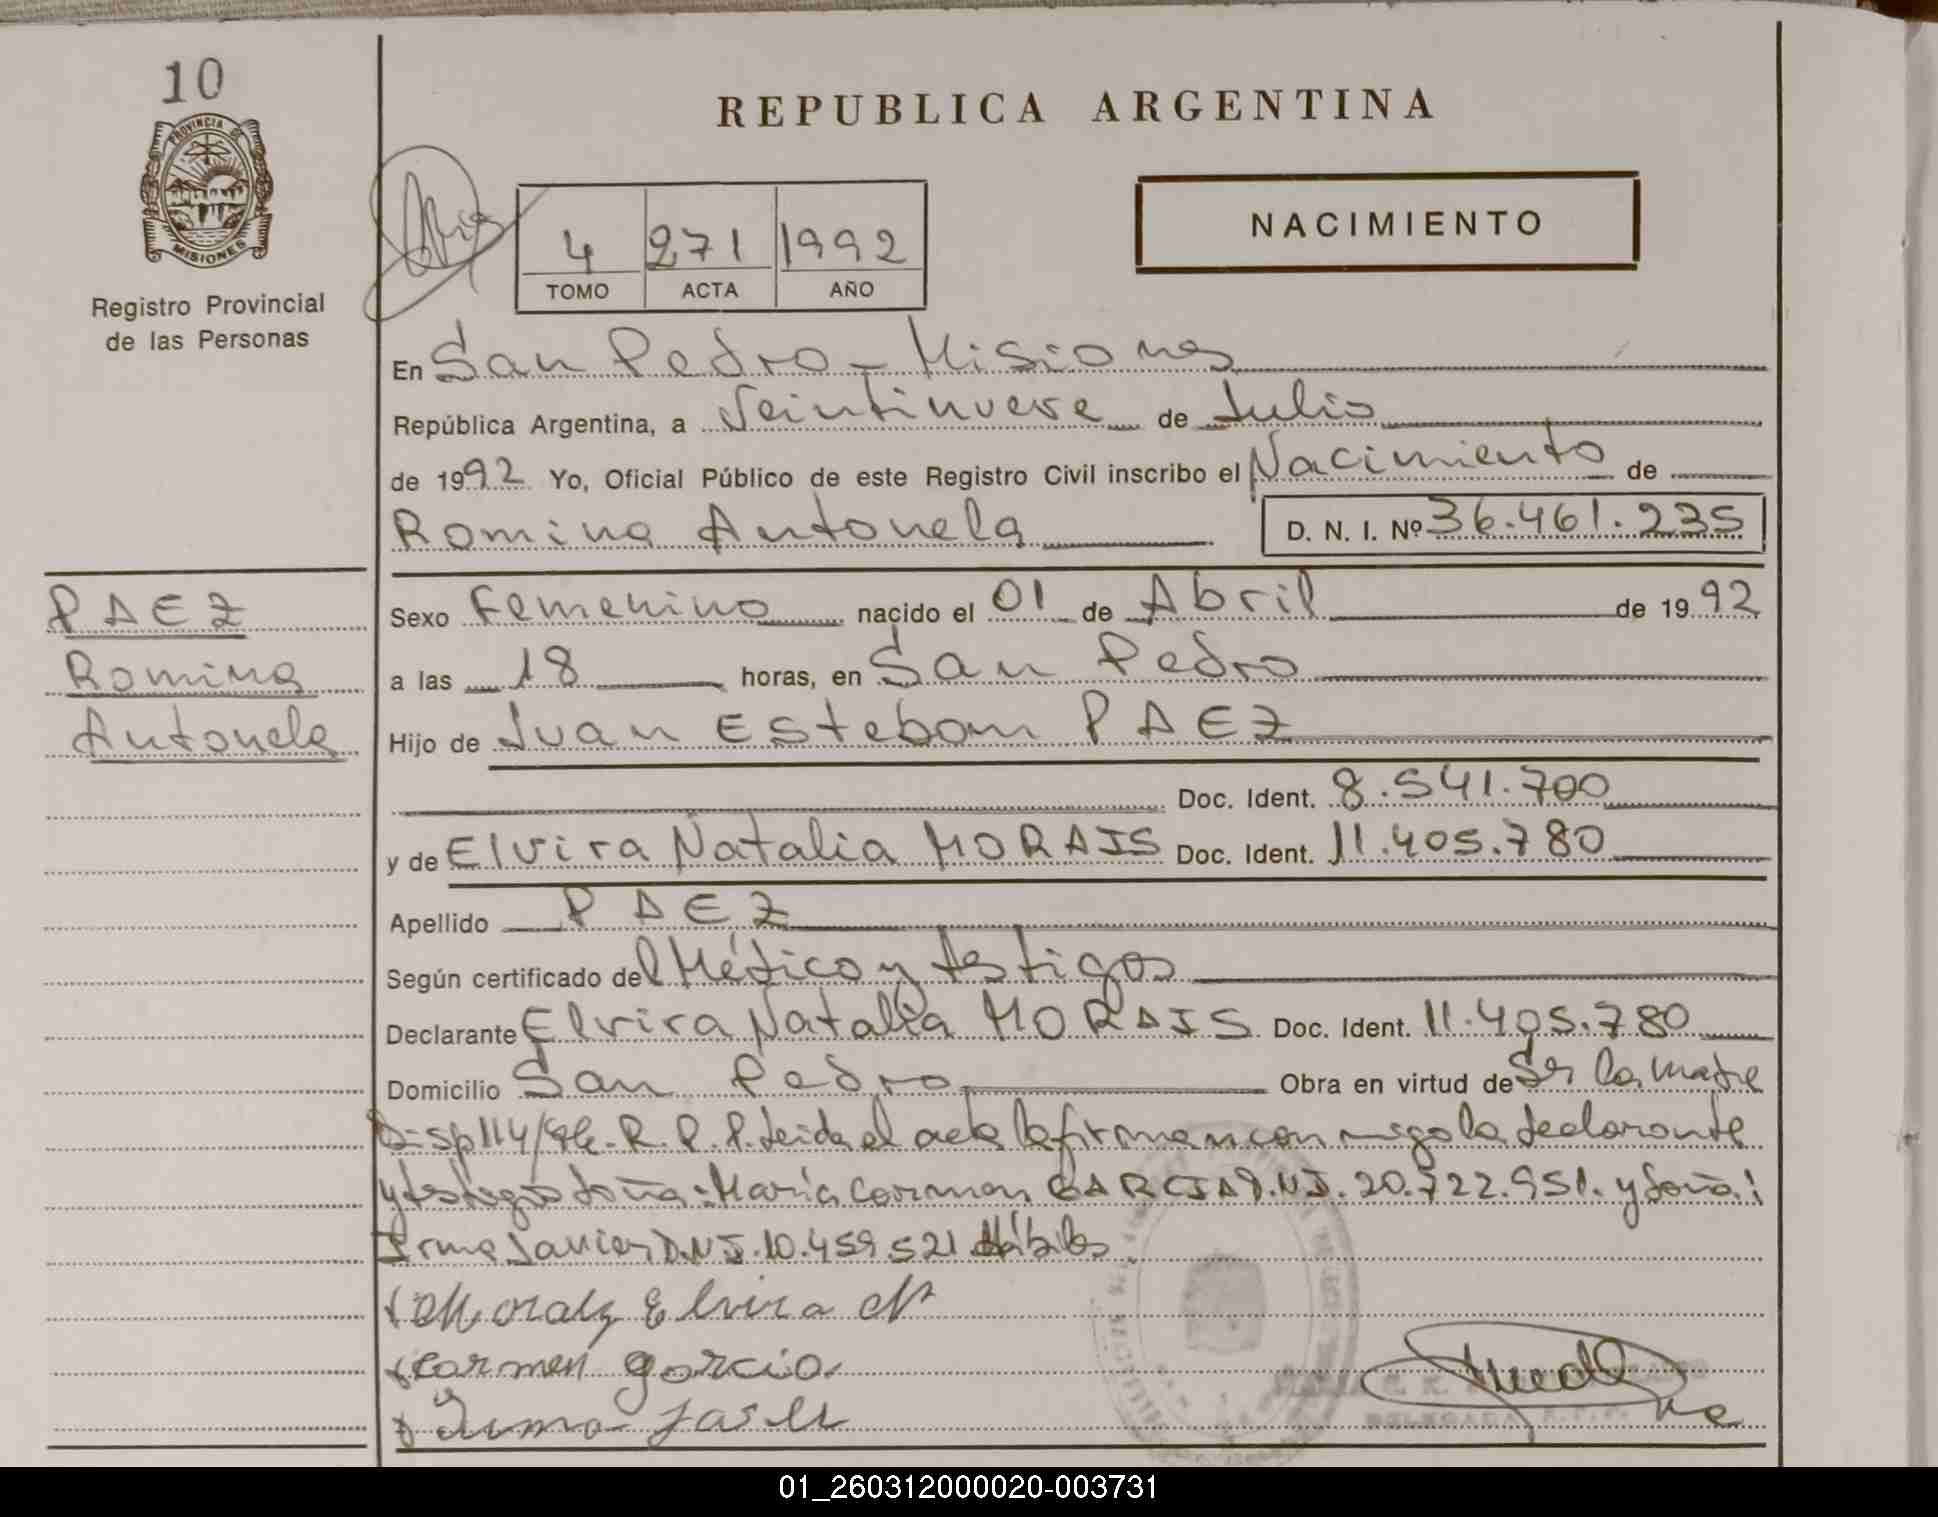 10
PROVINCIA DE
MISIONES
Registro Provincial
de las Personas
REPUBLICA ARGENTINA
NACIMIENTO
4 271 1992
TOMO ACTA AÑO
En San Pedro - Misiones
República Argentina, a Veintinueve de Julio
de 1992 Yo, Oficial Público de este Registro Civil inscribo el Nacimiento de
Romina Antonela D. N. I. Nº 36.461.235
PAEZ
Romina
Antonela
Sexo Femenino nacido el 01 de Abril de 1992
a las 18 horas, en San Pedro
Hijo de Juan Esteban PAEZ
Doc. Ident. 8.541.700
y de Elvira Natalia MORAIS Doc. Ident. 11.405.780
Apellido PAEZ
Según certificado del Médico y testigos
Declarante Elvira Natalia MORAIS Doc. Ident. 11.405.780
Domicilio San Pedro Obra en virtud de Ser la madre
Disp 114/ R.P.P. Leida el acta la firman conmigo la declarante
y testigos doña: María Carmen GARCIA D.N.I. 20.722.951. y doña:
Irma D.N.I. 10.459.521 Hábiles
Elvira N
Carmen Garcia
Irma
DELEGADA R.P.P.
01_260312000020-003731